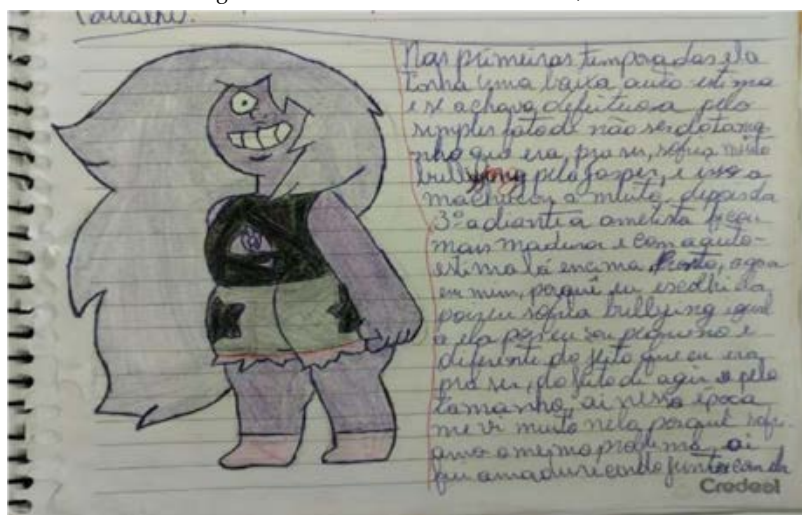 Nas primeiras temporadas ela
tinha uma baixa auto estima
e se achava defeituosa pelo
simples fato de não ser do tama
nho que era, pra ser, sofria muito
bullying pela jasper, e isso a
machucou a muito, depois da
3º adiante a ametista ficou
mais madura e com a auto-
estima lá encima Pronto, agora
em mim, porquê eu escolhi da
por eu sofria bullying igual
a ela por eu sou pequeno e
diferente do jeito que eu era
pra ser, do fato di agir e pelo
tamanho, ai nessa época
me vi muito nela, porquê sofri-
amos o mesmo problema, ai
fui amadurecendo junto com ela
Credeal